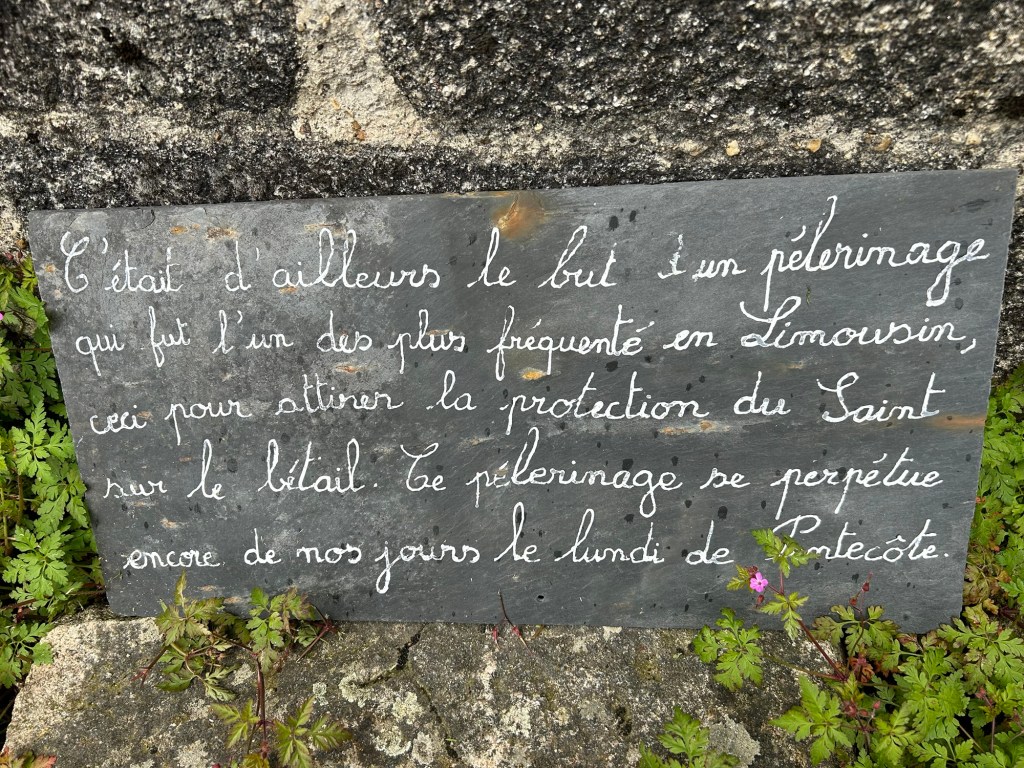 C'était d'ailleurs le but d'un pélerinage
qui fut l'un des plus fréquenté en Limousin,
ceci pour attirer la protection du Saint
sur le bétail. Ce pélerinage se perpétue
encore de nos jours le lundi de Pentecôte.